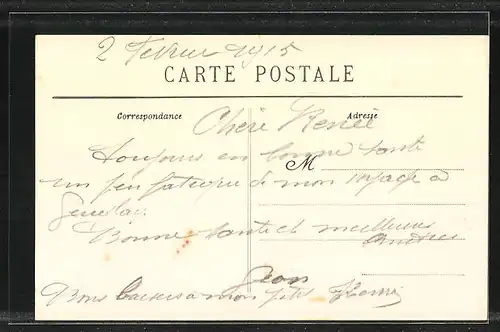 2 Fevrier 1915
CARTE POSTALE
Correspondance
Adresse
Chère Renée
Toujours en bonne santé
M
un peu fatigué de mon voyage a
Bonne santé et meilleures
Jean
Bons baisers a mon petit Henri